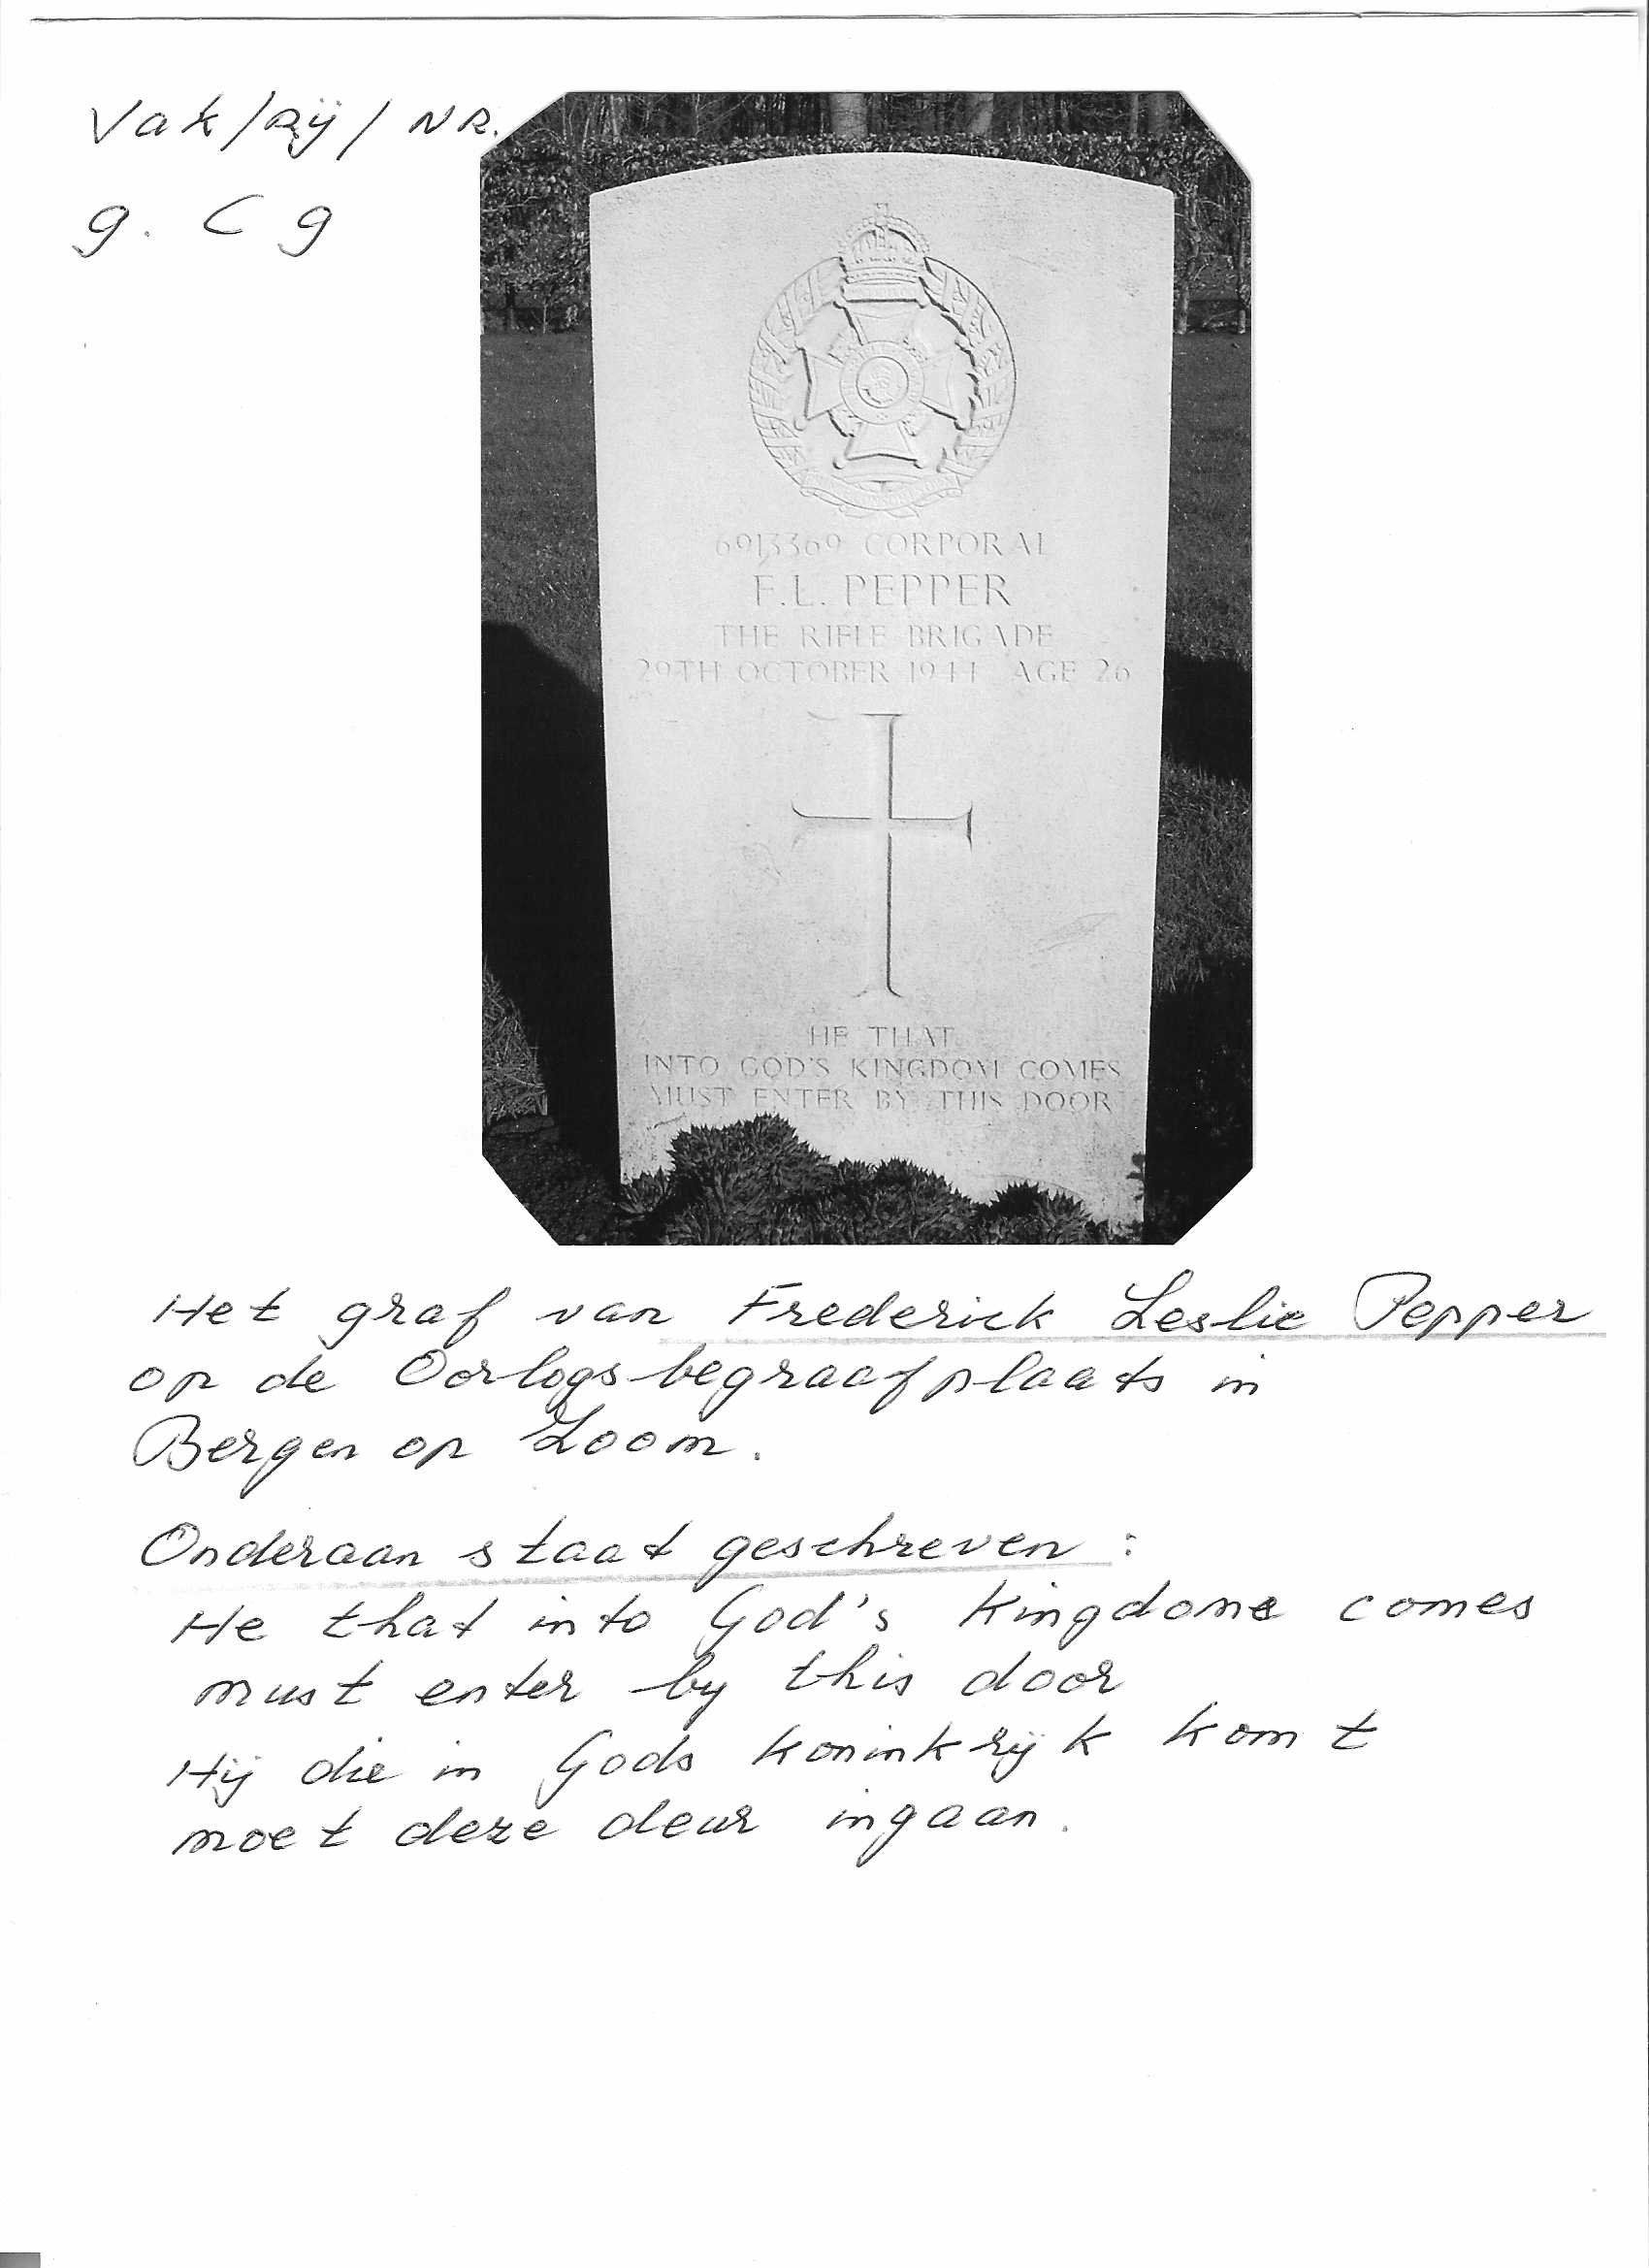 Vak/Rij/NR.
9. C 9
6913369 CORPORAL
F.L. PEPPER
THE RIFLE BRIGADE
29TH OCTOBER 1944 AGE 26
HE THAT
INTO GOD'S KINGDOM COMES
MUST ENTER BY THIS DOOR
Het graf van Frederick Leslie Pepper
op de Oorlogsbegraafplaats in
Bergen op Zoom.
Onderaan staat geschreven:
He that into God's Kingdome comes
must enter by this door
Hij die in Gods koninkrijk komt
moet deze deur ingaan.